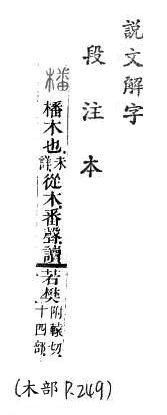 說文解字
段注本
橎 橎木也未詳從木番聲讀若樊附轅切十四部
(木部 P.249)